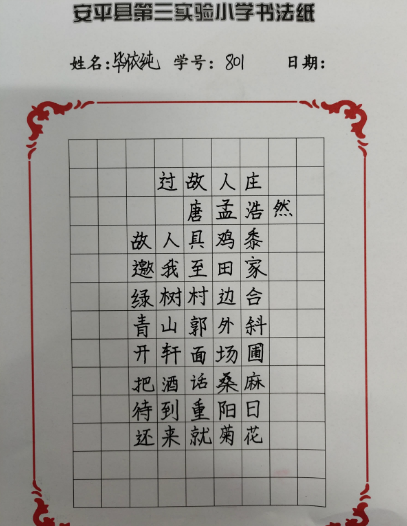 安平县第三实验小学书法纸
姓名:毕依纯 学号: 801 日期:
过故人庄
唐孟浩然
故人具鸡黍
邀我至田家
绿树村边合
青山郭外斜
开轩面场圃
把酒话桑麻
待到重阳日
还来就菊花